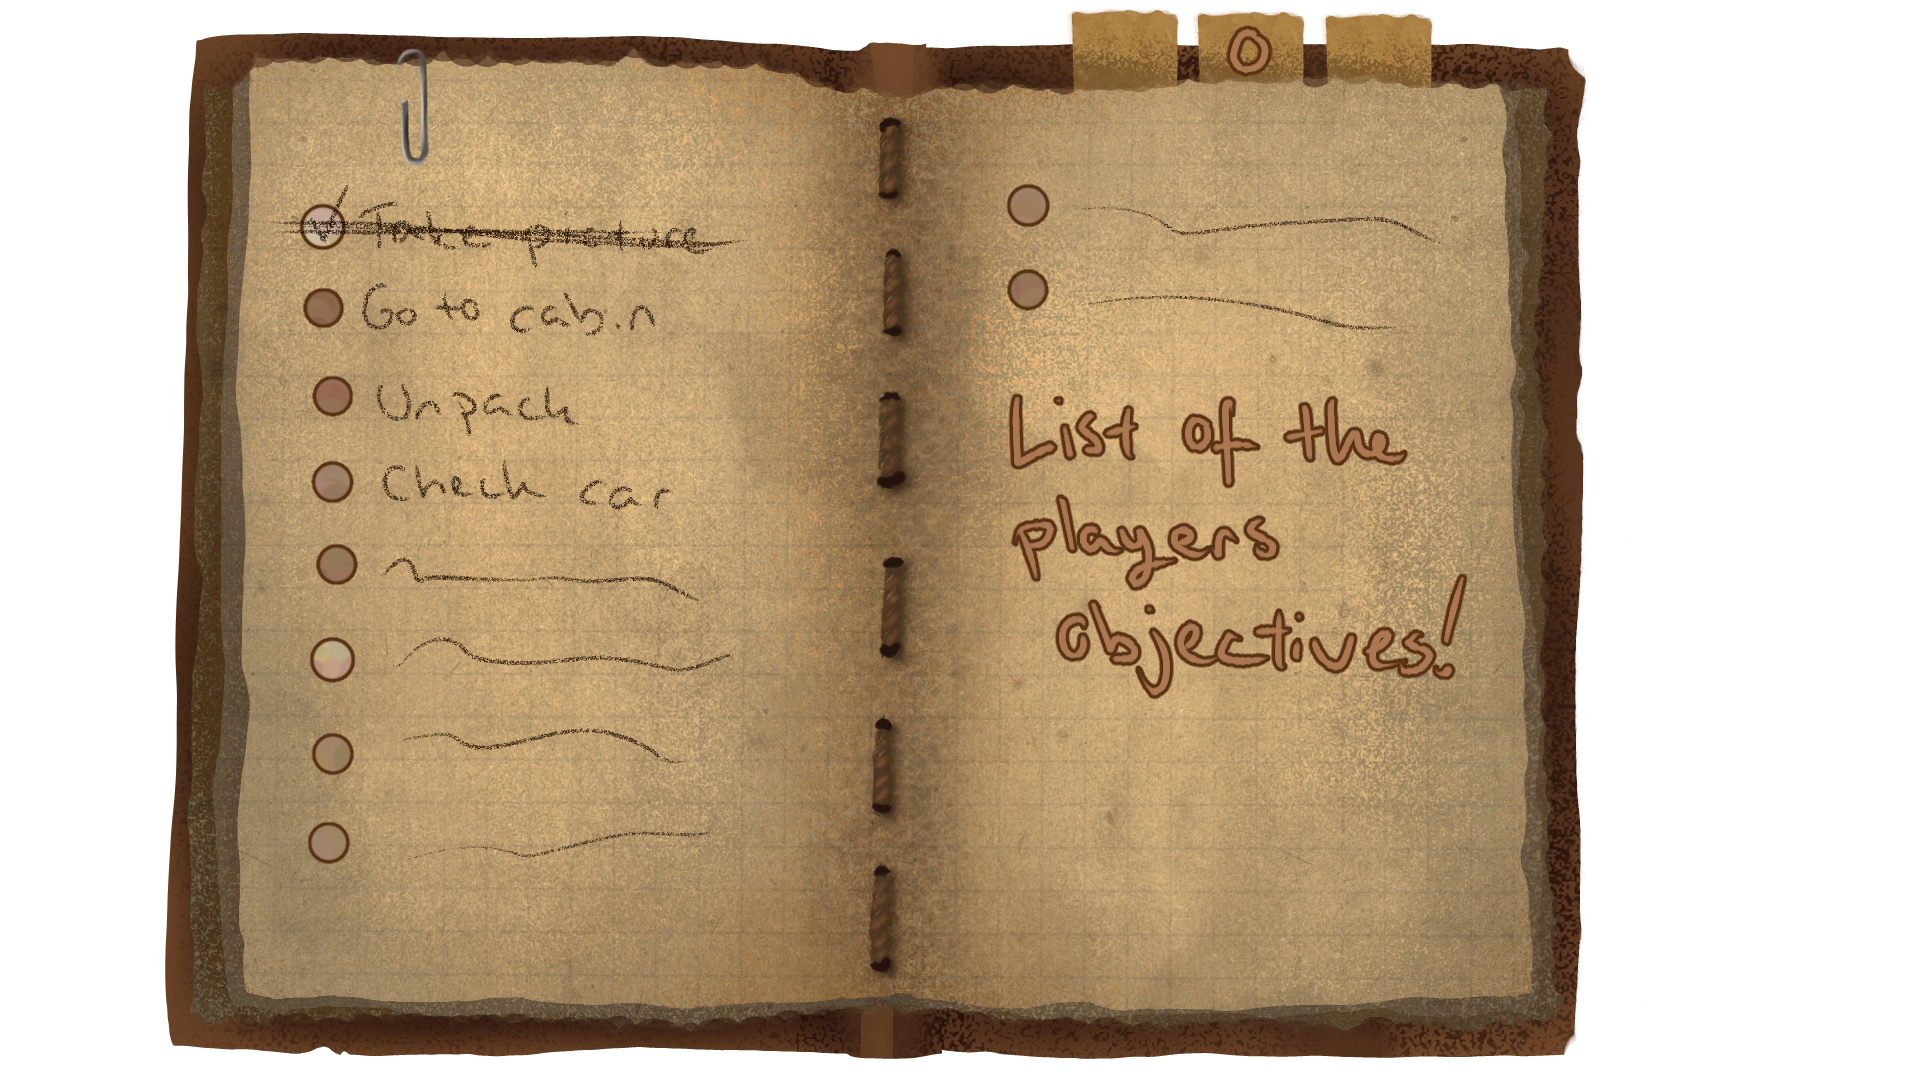 O
Take picture
Go to cabin
Unpack
Check car
List of the
players
objectives!